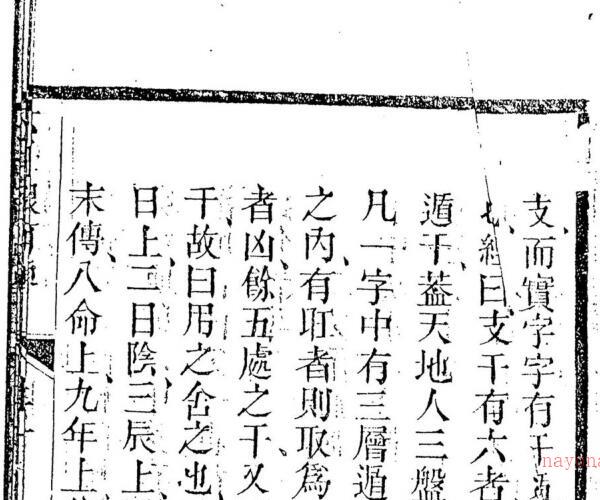 支而實字字有干
經曰支干有六者
遁干葢天地人三盤
凡一字中有三層遁
之內有耴者則取爲
者凶餘五處之干又
干故曰用之舍之也
日上二日陰三辰上
末傳八命上九年上